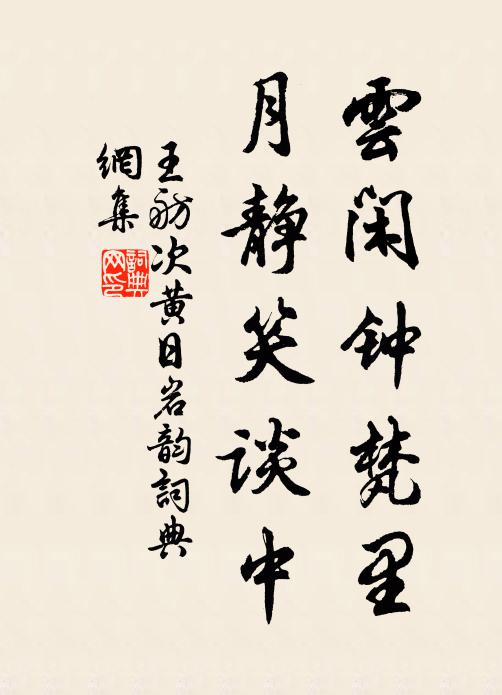 雲闲钟梵里
月静笑谈中
王舫次黄日岩韵詞典
網集
詞典
网印